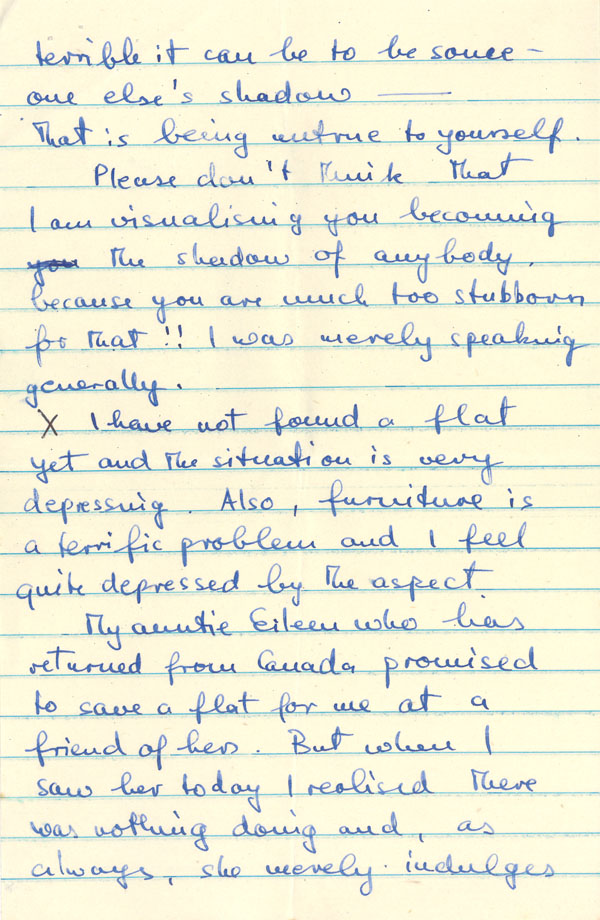 terrible it can be to be some-
one else's shadow ——
That is being untrue to yourself.
Please don't think that
I am visualising you becoming
you the shadow of anybody,
because you are much too stubborn
for that!! I was merely speaking
generally.
X I have not found a flat
yet and the situation is very
depressing. Also, furniture is
a terrific problem and I feel
quite depressed by the aspect.
My auntie Eileen who has
returned from Canada promised
to save a flat for me at a
friend of hers. But when I
saw her today I realised there
was nothing doing and, as
always, she merely indulges